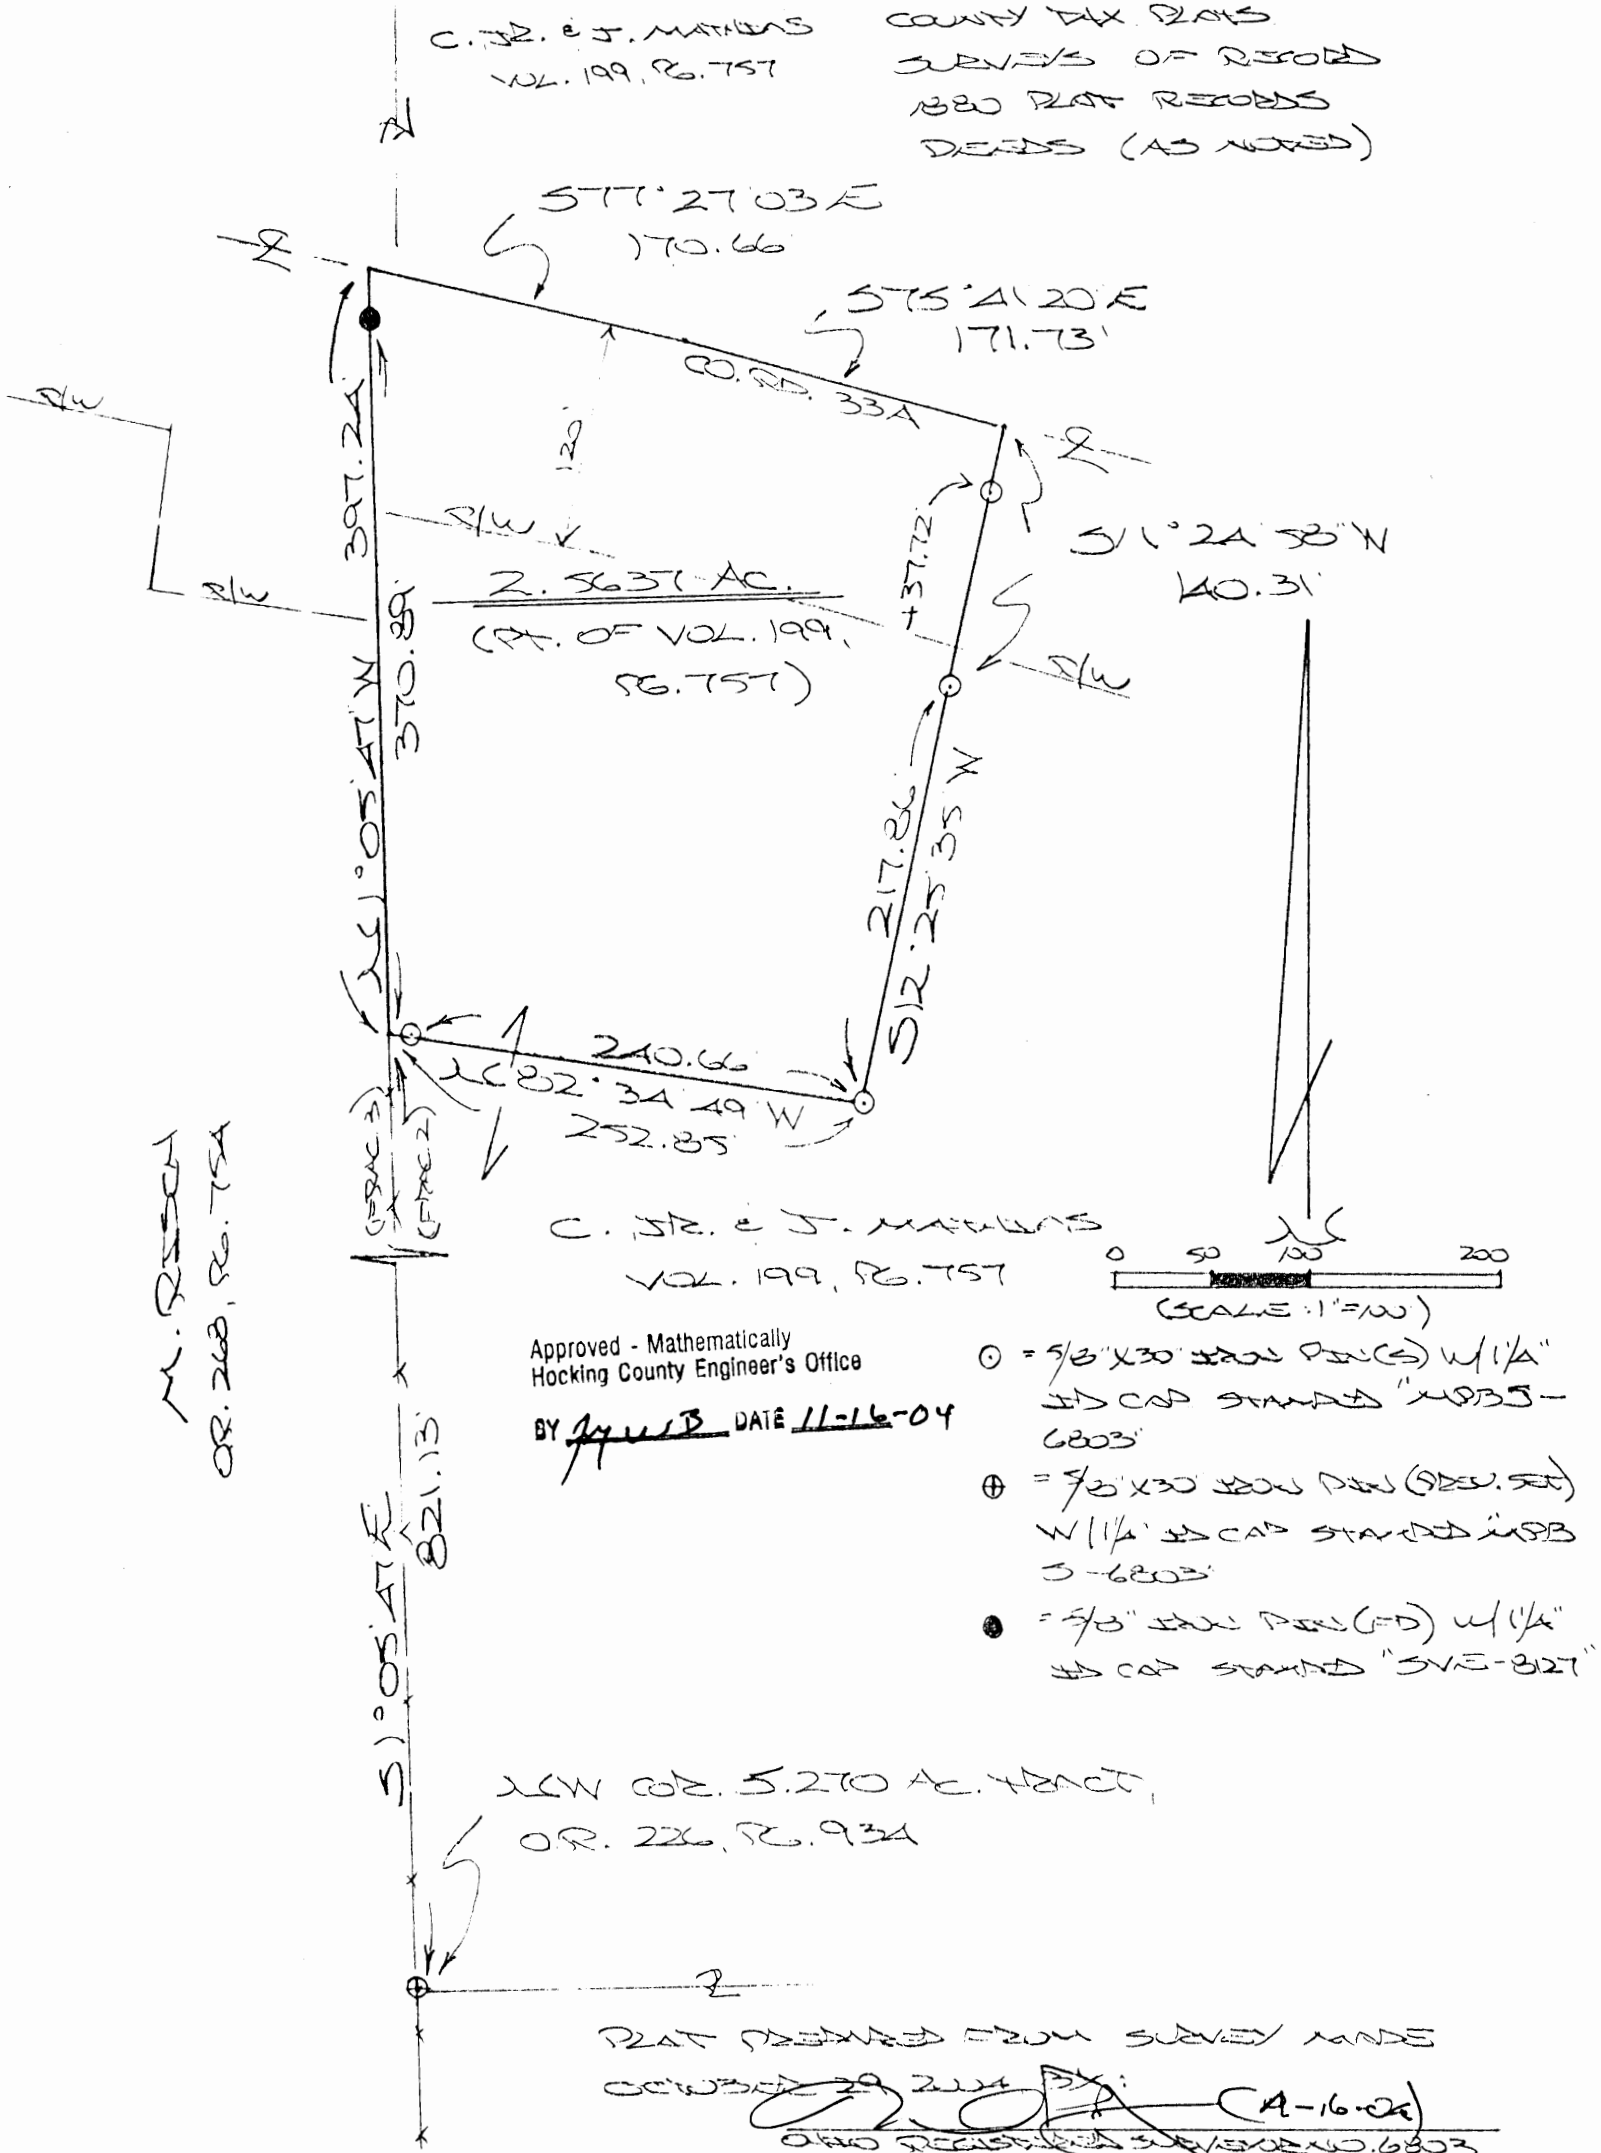 C. JR. & J. MATHIAS
VOL. 199, PG. 757
COUNTY TAX PLATS
SURVEYS OF RECORD
1880 PLAT RECORDS
DEEDS (AS NOTED)
S77°27'03"E
170.66'
S75°41'20"E
171.73'
CO. RD. 33A
R/W
397.24'
120'
R/W
+37.72'
S11°24'58"W
140.31'
R/W
2.5637 AC.
(PT. OF VOL. 199,
PG. 757)
R/W
N1°05'47"W
370.89'
217.86'
S12°25'35"W
240.66'
N82°34'49"W
252.85'
(FRAC. 3)
(FRAC. 2)
M. RESCH
OR. 268, PG. 754
C. JR. & J. MATHIAS
VOL. 199, PG. 757
N
0 50 100 200
(SCALE: 1"=100')
Approved - Mathematically
Hocking County Engineer's Office
BY DATE 11-16-04
⊙ = 5/8"X30" IRON PIN(S) W/ 1 1/4"
ID CAP STAMPED "MPB S-
6803"
⊕ = 5/8"X30" IRON PIN (PREV. SET)
W/ 1 1/4" ID CAP STAMPED "MPB
S-6803"
● = 5/8" IRON PIN (FD) W/ 1 1/4"
ID CAP STAMPED "SVE-8127"
S1°05'47"E
821.13'
NW COR. 5.270 AC. TRACT,
OR. 226, PG. 934
PLAT PREPARED FROM SURVEY MADE
OCTOBER 29, 2004 BY:
(11-16-04)
OHIO REGISTERED SURVEYOR NO. 6803